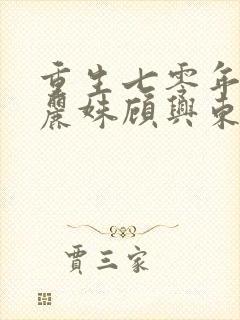 重生七零年
麗妹顧興東
賈三家